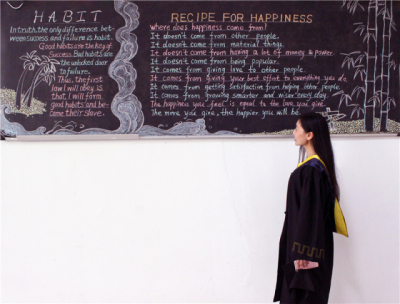 HABIT
In truth, the only difference bet-
ween success and failure is habit.
Good habits are the key of
success. Bad habits are
the unlocked door
to failure.
Thus, the first
law I will obey is
that I will form
good habits and be-
come their slave.
RECIPE FOR HAPPINESS
where does happiness come from?
It doesn't come from other people.
It doesn't come from material things.
It doesn't come from having a lot of money & power.
It doesn't come from being popular.
It comes from giving love to other people.
It comes from giving your best effort to everything you do.
It comes from getting satisfaction from helping other people.
It comes from growing smarter and wiser every day.
The happiness you feel is equal to the love you give.
The more you give, the happier you will be.